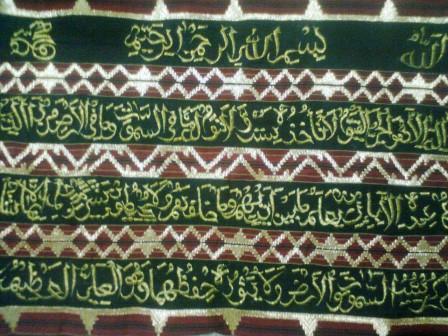 الله بسم الله الرحمن الرحيم محمد
الله لا إله إلا هو الحي القيوم لا تأخذه سنة ولا نوم له ما في السموات وما في الأرض من ذا الذي
عنده إلا بإذنه يعلم ما بين أيديهم وما خلفهم ولا يحيطون بشيء من علمه إلا بما شاء
وسع كرسيه السموات والأرض ولا يؤده حفظهما وهو العلي العظيم